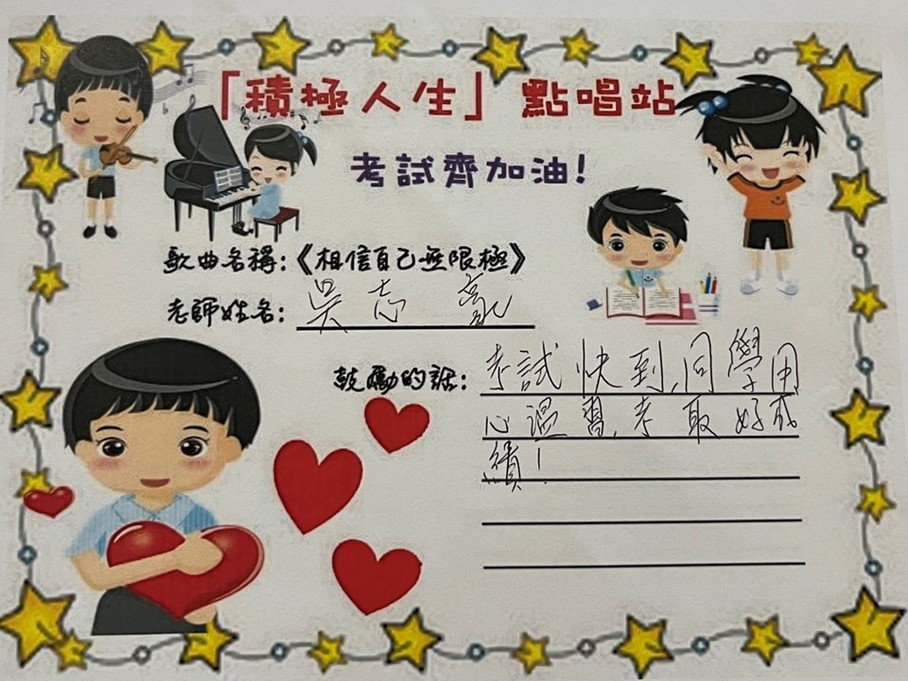 「積極人生」點唱站
考試齊加油!
歌曲名稱:《相信自己無限極》
老師姓名: 吳志
鼓勵的話: 考試快到,同學用
心溫習,考取好成
績!